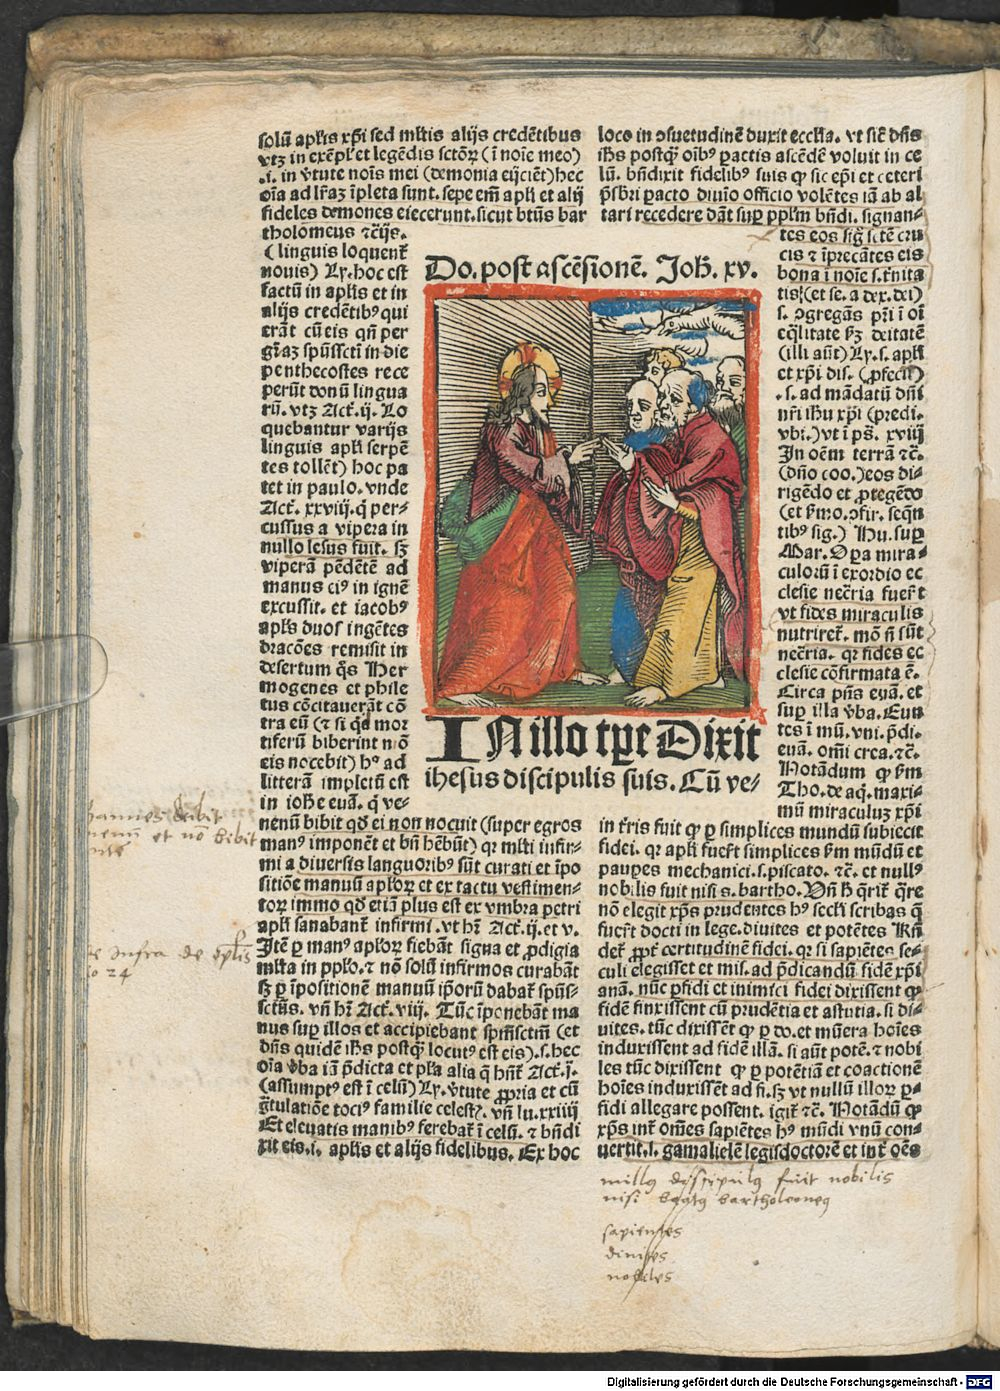 solū apl'is xp̄i sed ml'tis alijs credētibus
vtꝫ in exēpl' et legēdis sctōꝝ (ī noīe meo)
.i. in v̓tute noīs mei (demonia eijciēt) hec
oīa ad lr̄aꝫ īpleta sunt. sepe em̄ apl'i et alij
fideles demones eiecerunt. sicut btūs bar
tholomeus ⁊c̄ijs.
(linguis loquent̄
nouis) Ly. hoc est
factū in apl'is et in
alijs credētibꝰ qui
erāt cū eis qn̄ per
gr̄aꝫ spūssctī in die
penthecostes rece
perūt donū lingua
rū. vtꝫ Act̄. ij. Lo
quebantur varijs
linguis apl'i serpē
tes tollēt) hoc pa
tet in paulo. vnde
Act̄. xxviij. q̄ per-
cussus a vipera in
nullo lesus fuit. sꝫ
viperā pēdētē ad
manus eiꝰ in ignē
excussit. et iacobꝰ
apl's duos ingētes
dracōes remisit in
desertum q̄s Her
mogenes et phile
tus cōcitauerāt cō
tra eū (⁊ si qd̄ mor
tiferū biberint nō
eis nocebit) hꝰ ad
litterā impletū est
in ioh̄e euā. q̄ ve-
nenū bibit qd̄ ei non nocuit (super egros
manꝰ imponēt et bn̄ hēbūt) qr ml'ti infir-
mi a diuersis languoribꝰ sūt curati et īpo
sitiōe manuū apl'oꝝ et ex tactu vestimen-
toꝝ immo qd̄ etiā plus est ex vmbra petri
apl'i sanabant̄ infirmi. vt hr̄ Act̄. ij. et v.
Itē ꝑ manꝰ apl'oꝝ fiebāt signa et ꝓdigia
ml'ta in pplo. ⁊ nō solū infirmos curabāt
sꝫ ꝑ īpositionē manuū ip̄oꝝ dabat̄ spūs-
sctūs. vn̄ hr̄ Act̄. viij. Tūc īponebāt ma
nus suꝑ illos et accipiebant spm̄sctm̄ (et
dn̄s quidē ih̄s postq̄ locutꝰ est eis). s. hec
oīa v̓ba iā p̄dicta et pl'a alia q̄ hn̄t̄ Act̄. j.
(assumptꝰ est ī celū) Ly. v̓tute ꝓpria et cū
gr̄tulatiōe tociꝰ familie celestꝭ. vn̄ lu. xxiiij
Et eleuatis manibꝰ ferebat̄ ī celū. ⁊ bn̄di
xit eis. i. apl'is et alijs fidelibus. Ex hoc
loco in ꝯsuetudinē duxit eccl'ia. vt sic̄ dn̄s
ih̄s postq̄ oībꝰ ꝑactis ascēdē voluit in ce
lū. bn̄dixit fidelibꝰ suis ꝙ sic ep̄i et ceteri
p̄sbr̄i ꝑacto diuīo officio volētes iā ab al
tari recedere dāt suꝑ pplm̄ bn̄di. signan-
tes eos sig̓ sctē cru
cis ⁊ īprecātes eis
bona ī noīe s. tr̄nita
tis (et se. a dex. dei)
s. ꝯgregās pr̄i ī oī
eq̄litate ẜꝫ deitatē
(illi aūt) Ly. s. apl'i
et xp̄i dis. (ꝓfecti)
. s. ad mādatū dn̄i
nr̄i ih̄u xp̄i (predi.
vbi.) vt ī ps̄. xviij
In oēm terrā ⁊c̄.
(dn̄o coo.) eos di-
rigēdo et ꝓtegēdo
(et ẜmo. ꝯfir. seqn̄
tibꝰ sig.) Hu. suꝑ
Mar. Oꝑa mira-
culoꝝ ī exordio ec
clesie nec̄ria fuer̄t
vt fides miraculis
nutriret̄. mō n̄ sūt
nec̄ria. qr fides ec
clesie cōfirmata ē.
Circa pn̄s euā. et
suꝑ illa v̓ba. Eun
tes ī mū. vni. p̄di.
euā. om̄i crea. ⁊c̄.
Notādum ꝙ ẜm
Tho. de aq. maxi-
mū miraculuꝫ xp̄i
Do. post ascēsionē. Joh̄. xv.
IN illo tꝑe Dixit
ihesus discipulis suis. Cū ve-
in tr̄ris fuit ꝙ ꝑ simplices mundū subiecit
fidei. qr apl'i fuer̄t simplices ẜm mūdū et
pauꝑes mechanici. s. piscato. ⁊c̄. et nullꝰ
nobilis fuit nisi s. bartho. Vn̄ h̄ q̄rit̄ q̄re
nō elegit xp̄s prudentes hꝰ secl'i scribas q̄
fuer̄t docti in lege. diuites et potētes Rn̄
det̄ ꝓpt̄ certitudinē fidei. qr si sapiētes se-
culi elegisset et mis. ad p̄dicandū fidē xp̄i
anā. nūc ꝑfidi et inimici fidei dixissent ꝙ
fidē finxissent cū prudētia et astutia. si di-
uites. tūc dixissēt ꝙ ꝑ do. et mūera hoīes
induxissent ad fidē illā. si aūt potē. ⁊ nobi
les tūc dixissent ꝙ ꝑ potētiā et coactionē
hoīes induxissēt ad fi. sꝫ vt nullū illoꝝ ꝑ-
fidi allegare possent. igit̄ ⁊c̄. Notādū ꝙ
xp̄s int̄ om̄es sapiētes hꝰ mūdi vnū con-
uertit. s. gamalielē legisdoctorē et int̄ oēs
nullꝰ discipulꝰ fuit nobilis
nisi beatꝰ bartholomeꝰ
sapientes
diuites
nobiles
Digitalisierung gefördert durch die Deutsche Forschungsgemeinschaft - DFG